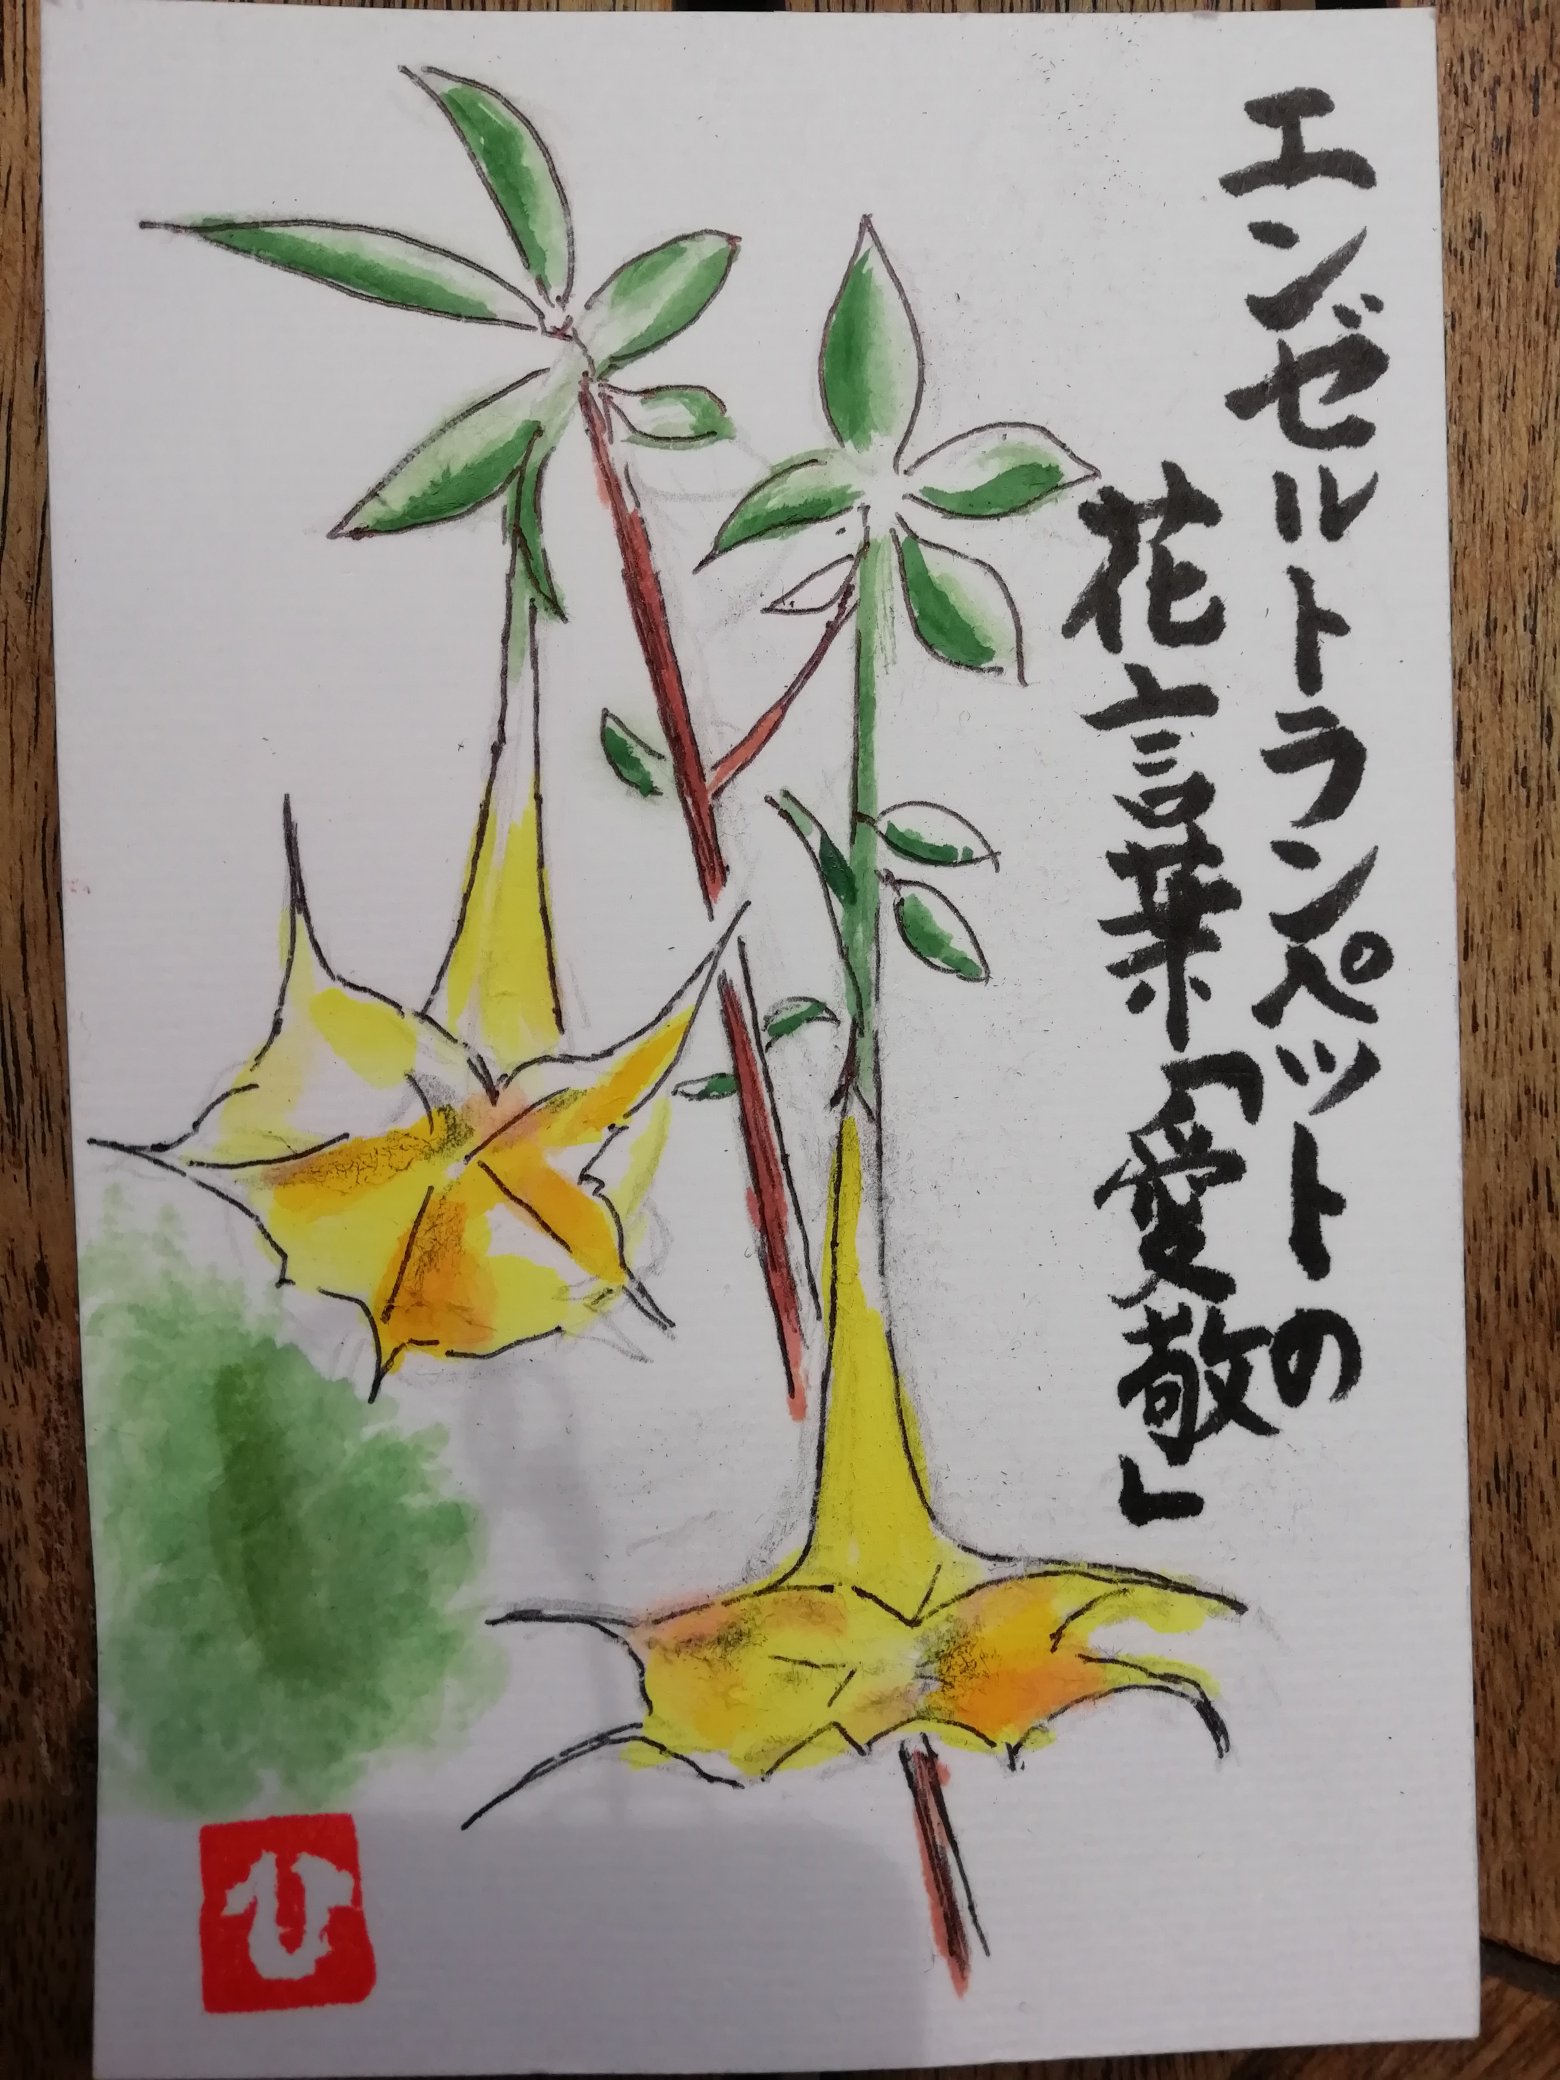 エンゼルトランペットの
花言葉「愛敬」
ひ